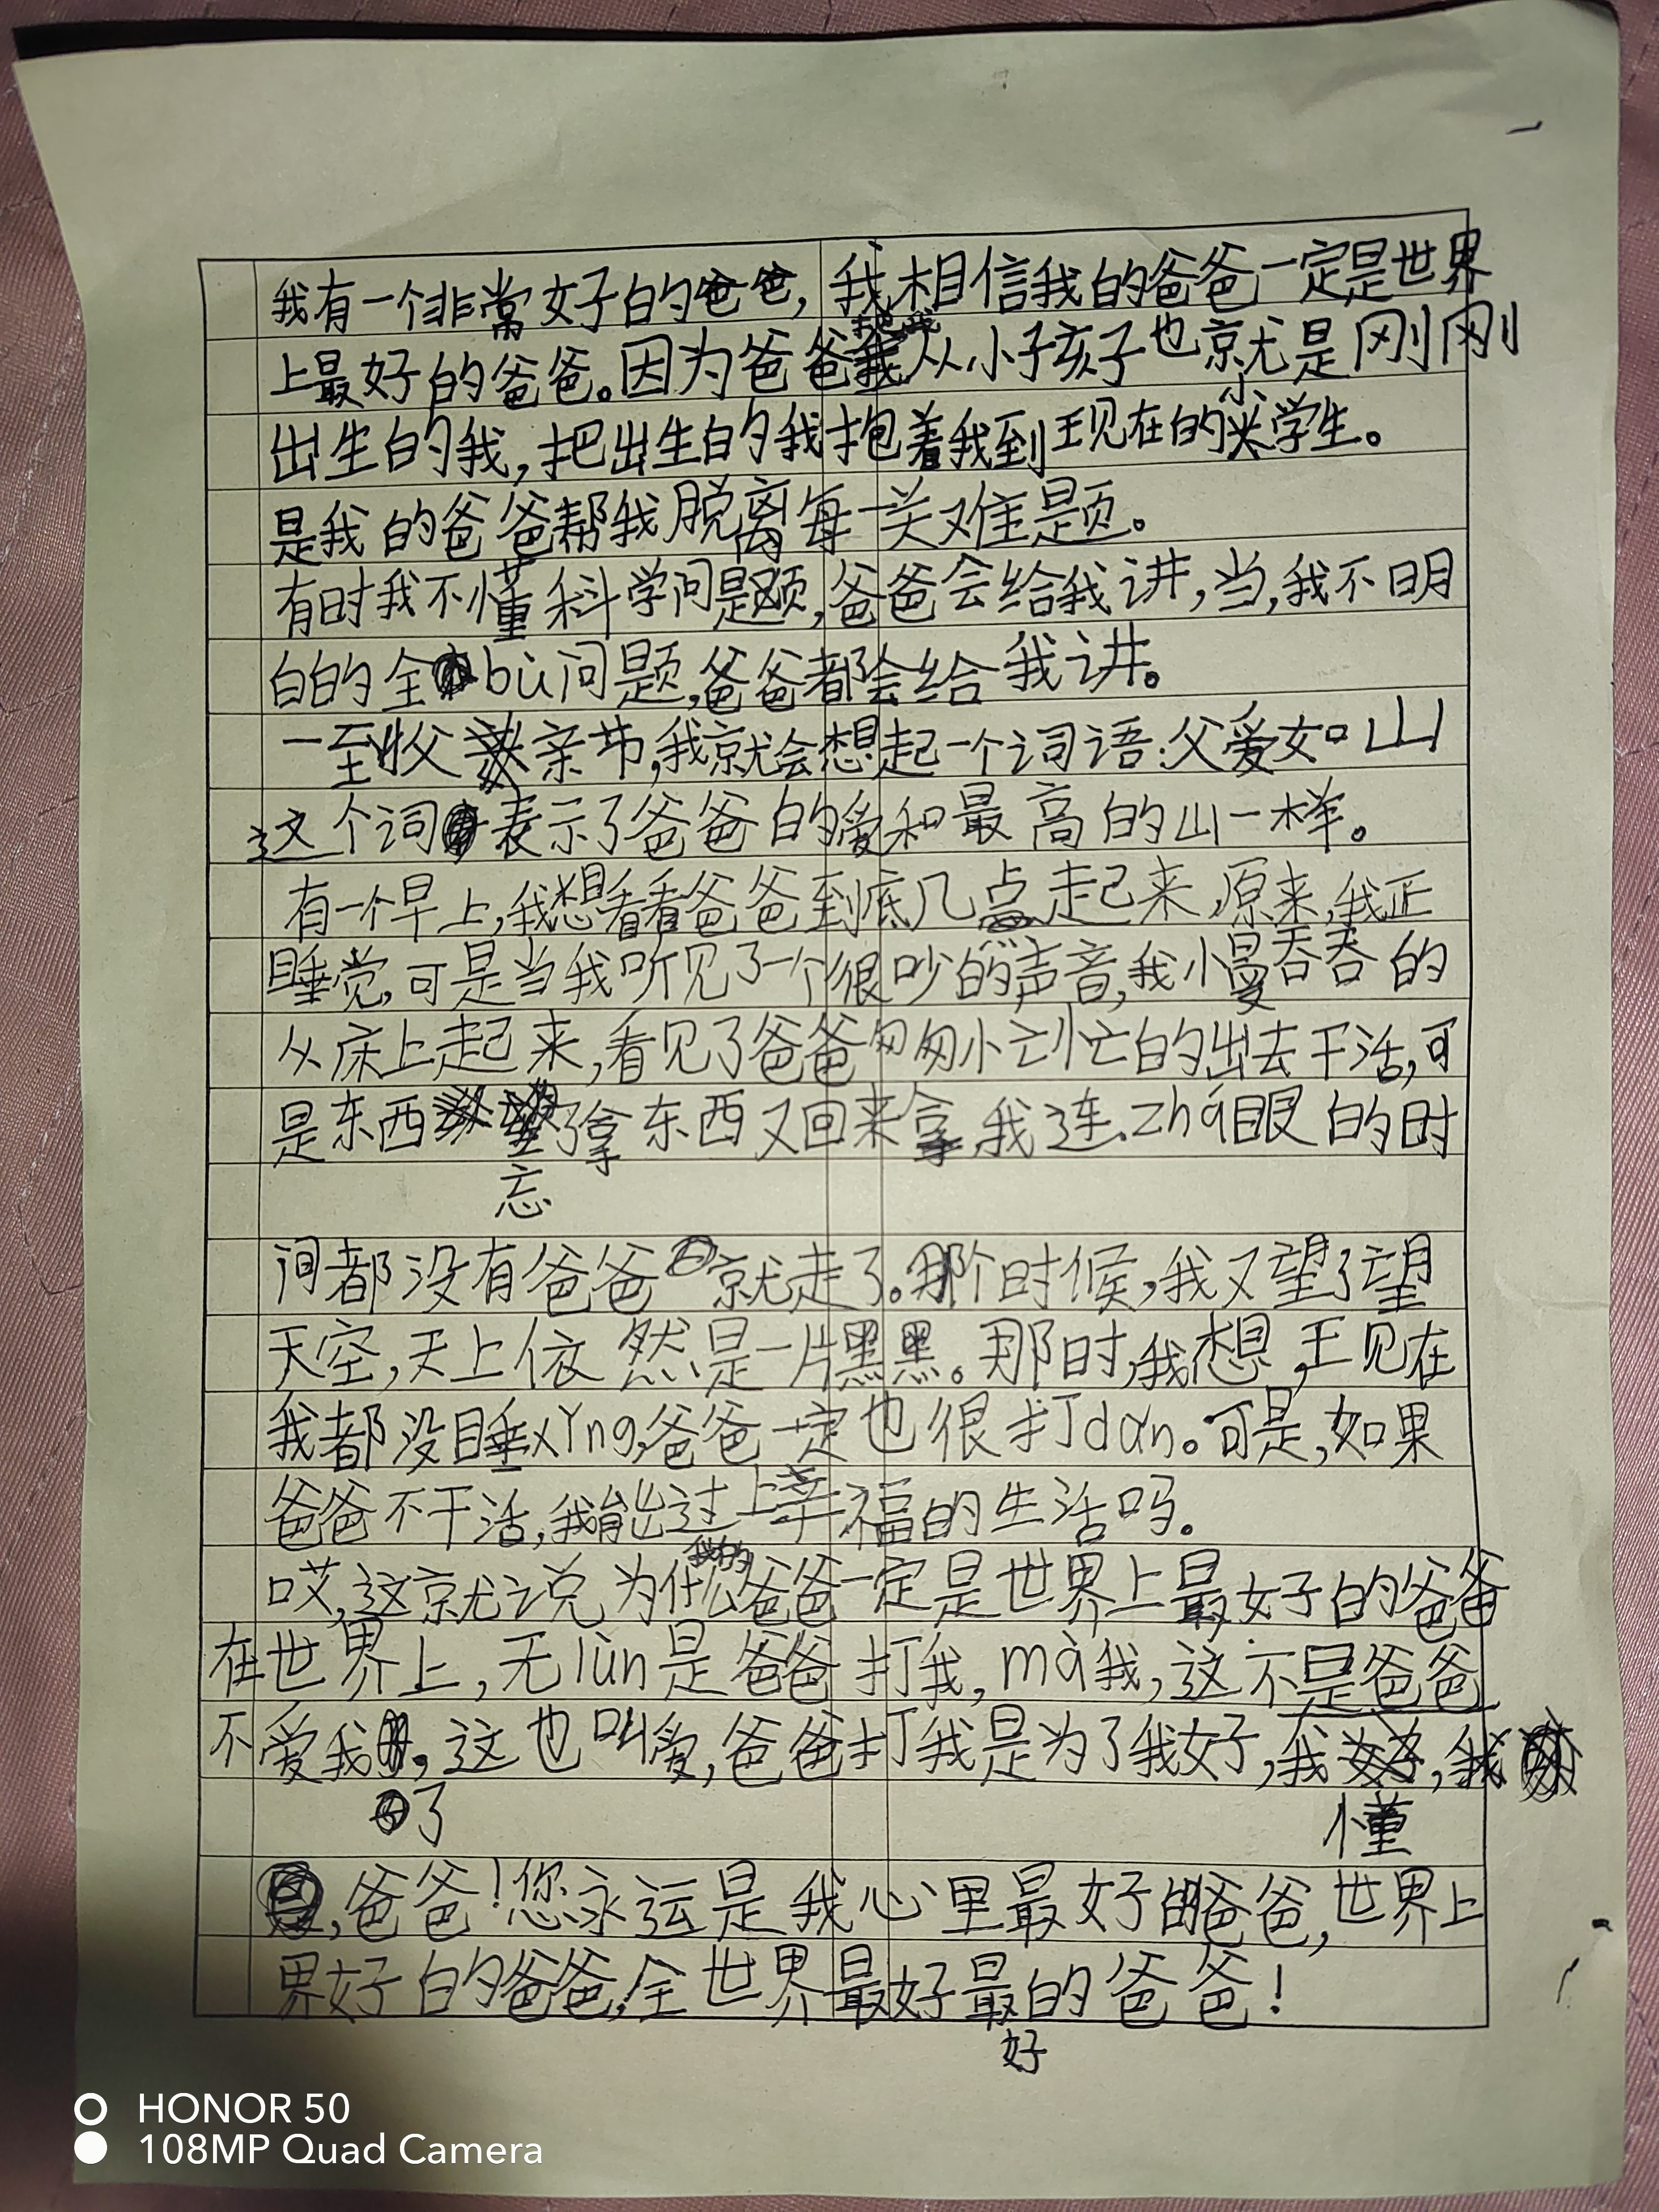 我有一个非常好的爸爸，我相信我的爸爸一定是世界
上最好的爸爸。因为爸爸从小子孩子也就是刚刚
出生的我，把出生的我抱着我到现在的小学生。
是我的爸爸帮我脱离每一关难题。
有时我不懂科学问题，爸爸会给我讲，当，我不明
白的全bù问题，爸爸都会给我讲。
一到父亲节，我就会想起一个词语：父爱如山
这个词表示了爸爸的爱和最高的山一样。
有一个早上，我想看看爸爸到底几点起来，原来，我正
睡觉，可是当我听见了一个很吵的声音，我慢吞吞的
从床上起来，看见了爸爸匆匆忙忙的出去干活，可
是东西忘了拿东西又回来拿，我连zhá眼的时
间都没有爸爸就走了。那个时候，我又望了望
天空，天上依然是一片黑黑。那时，我想，现在
我都没睡xǐng，爸爸一定也很打dǔn。可是，如果
爸爸不干活，我能过上幸福的生活吗。
哎，这就说为什么我的爸爸一定是世界上最好的爸爸
在世界上，无lùn是爸爸打我，mà我，这不是爸爸
不爱我了，这也叫爱，爸爸打我是为了我好，我懂，我
，爸爸！您永运是我心里最好的爸爸，世界上
界好的爸爸，全世界最好最好的爸爸！
HONOR 50
108MP Quad Camera